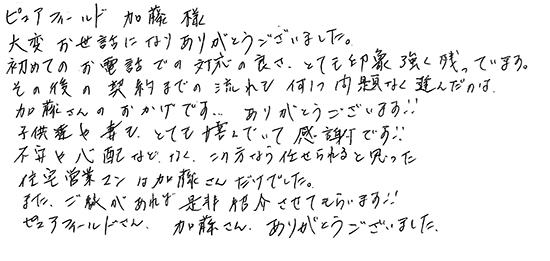 ピュアフィールド 加藤 様
大変お世話になりありがとうございました。
初めてのお電話での対応の良さ、とても印象強く残っています。
その後の契約までの流れも何1つ問題なく進んだのは、
加藤さんのおかげです… ありがとうございます!!
子供達や妻も、とても喜んでいて感謝です!!
不安や心配などなく、この方なら任せられると思った
住宅営業マンは加藤さんだけでした。
また、ご縁があれば是非紹介させてもらいます!!
ピュアフィールドさん、加藤さん、ありがとうございました。